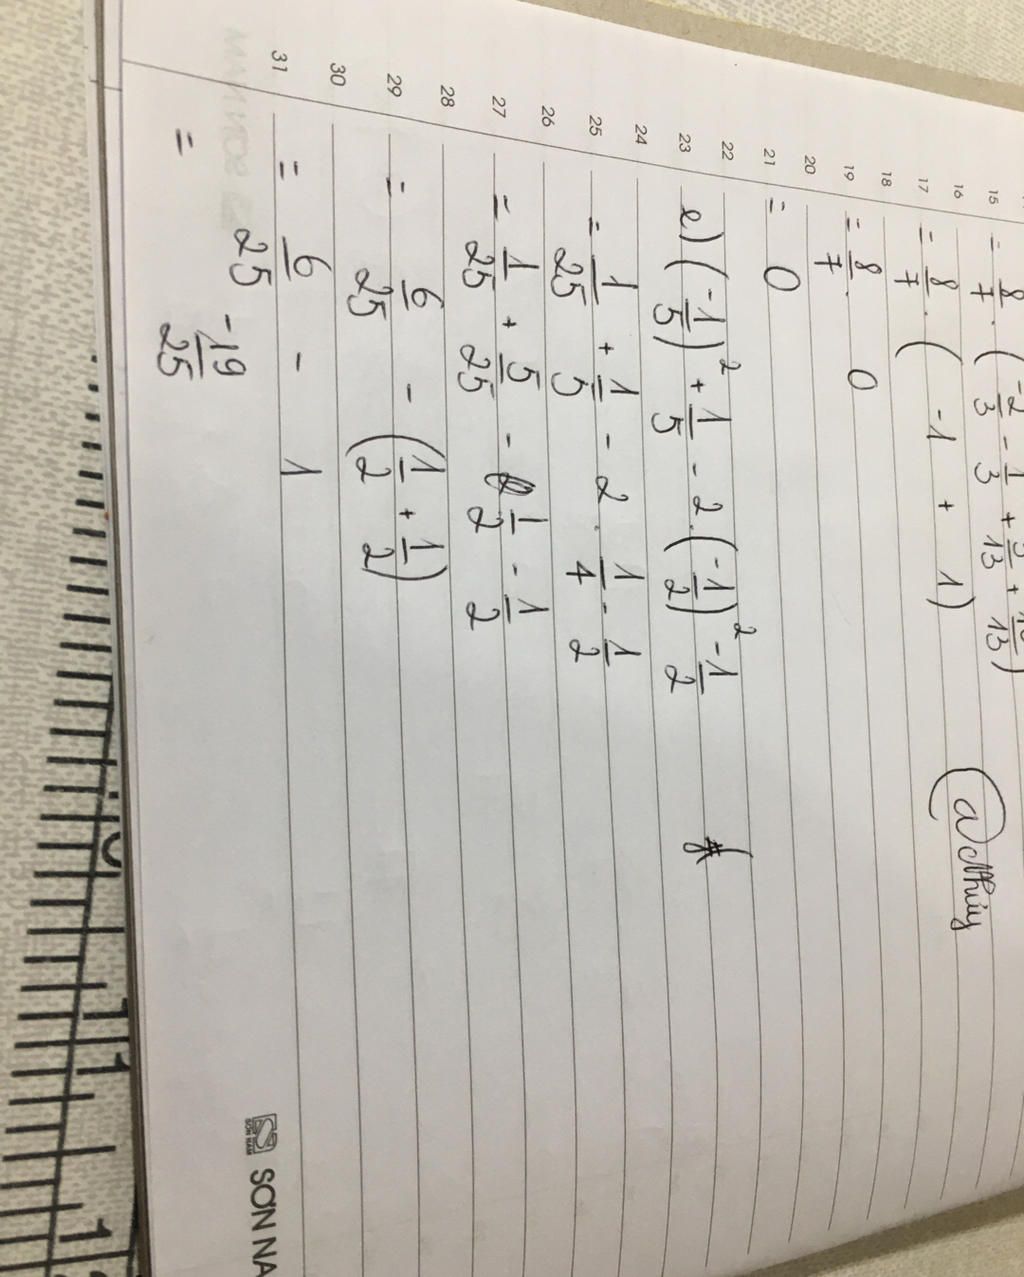 15 = 8/7 . (-2/3 - 1/3 + 3/13 + 10/13)
16
17 = 8/7 . ( -1 + 1)
18
19 = 8/7 . 0
20
21 = 0
22
23 e) (-1/5)² + 1/5 - 2.(-1/2)² - 1/2
24
25 = 1/25 + 1/5 - 2 . 1/4 - 1/2
26
27 = 1/25 + 5/25 - 1/2 - 1/2
28
29 = 6/25 - (1/2 + 1/2)
30
31 = 6/25 - 1
= -19/25
SƠN NA